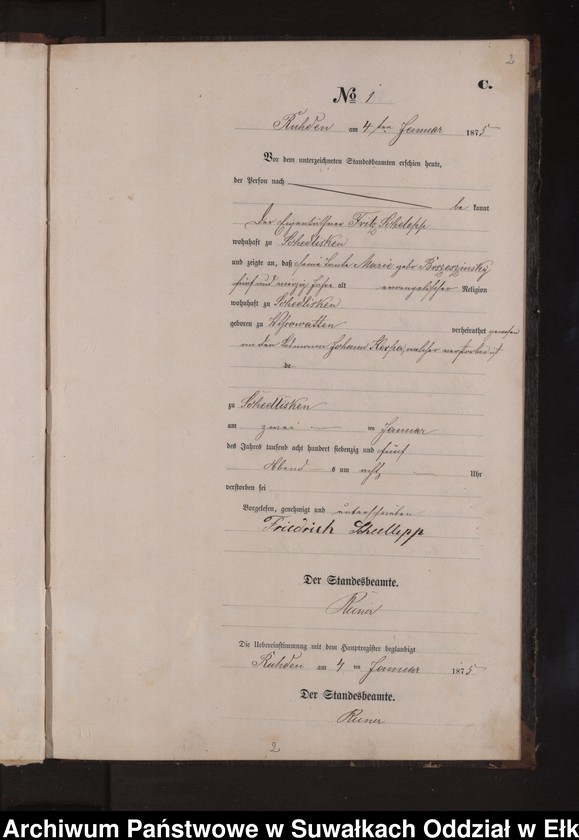 2
C.
No 1
Ruhden am 4ten Januar 1875
Vor dem unterzeichneten Standesbeamten erschien heute,
der Person nach
be kannt
Der Eigenthümer Fritz Schelepp
wohnhaft zu Schedlisken
und zeigte an, daß seine Tante Marie gebr
fünf und Jahre alt evangelischer Religion
wohnhaft zu Schedlisken
geboren zu verheirathet gewesen
an den Johann welcher verstorben ist
de
zu Schedlisken
am zwei ten Januar
des Jahres tausend acht hundert siebenzig und fünf
Abend s um acht Uhr
verstorben sei
Vorgelesen, genehmigt und unterschrieben
Friedrich Schellepp
Der Standesbeamte.
Reiner
Die Uebereinstimmung mit dem Hauptregister beglaubigt
Ruhden am 4 ten Januar 1875
Der Standesbeamte.
Reiner
2
Archiwum Państwowe w Suwałkach Oddział w Ełk